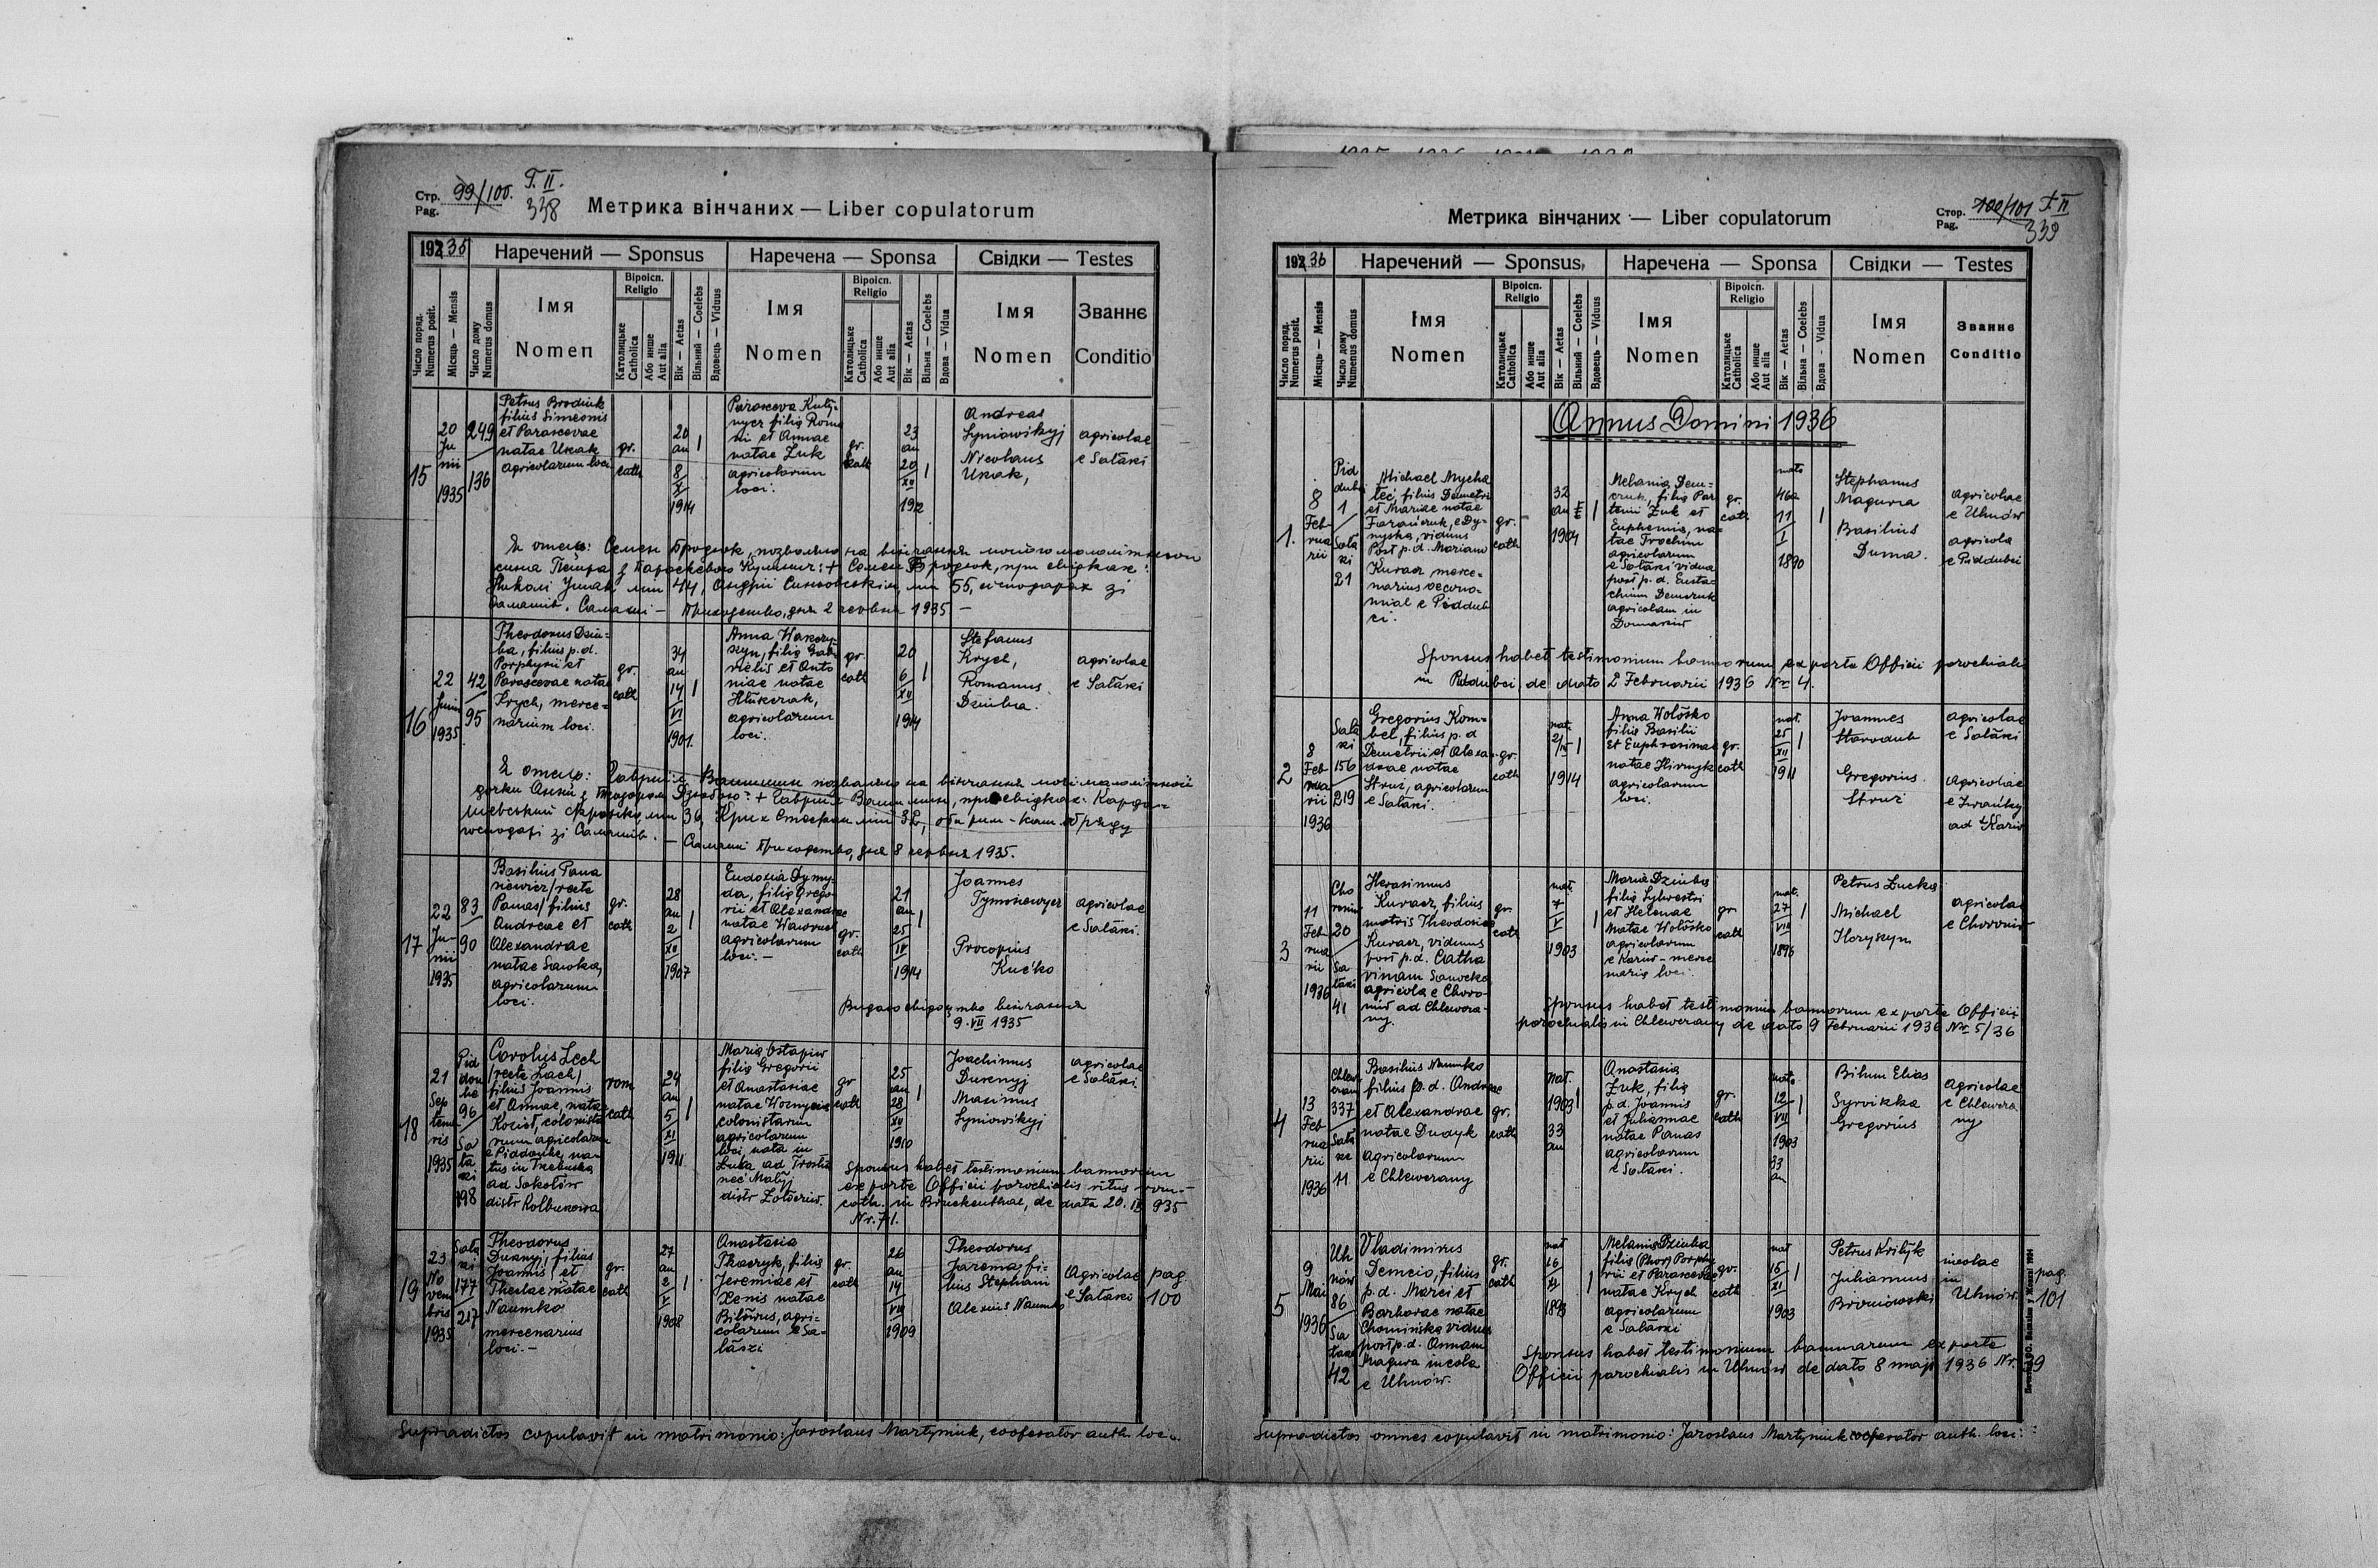 Стр. 99/100. T. II.
Pag. 338
Метрика вінчаних — Liber copulatorum
1935
Наречений — Sponsus
Наречена — Sponsa
Свідки — Testes
Число поряд. Numerus posit.
Місяць — Mensis
Число дому Numerus domus
Імя
Nomen
Віроісп. Religio
Католицьке Catholica
Або инше Aut alia
Вік — Aetas
Вільний — Coelebs
Вдовець — Viduus
Імя
Nomen
Віроісп. Religio
Католицьке Catholica
Або инше Aut alia
Вік — Aetas
Вільна — Coelebs
Вдова — Vidua
Імя
Nomen
Званнє
Conditio
15
20
Ju-
nii
1935
249
136
Petrus Brodiuk
filius Simeonis
et Parascevae
natae Uszak
agricolarum loci
gr.
cath
20
an
8
X
1914
Parasceva Kuty-
nycz filia Roma
ni et Annae
natae Zuk
agricolarum
loci.
gr.
cath
23
an
20
XII
1912
Andreas
Syniowśkyj
Nicolaus
Uszak,
agricolae
e Sałaszi
Я отець: Семен Бродюк, позволяю на вінчання мойого малолітнього
сина Петра з Параскевою Кутинич: + Семен Бродюк, при свідках:
Николі Ушак чм 44, Андрії Синьовським, чм 55, господарах зі
Салашів. Салаші — Приходство, дня 2 червня 1935 —
16
22
Junii
1935
42
95
Theodorus Dziu-
ba, filius p. d.
Porphyrii et
Parascevae natae
Krych, merce-
narium loci.
gr.
cath
34
an
14
VI
1901.
Anna Waszczy-
szyn, filia Gab-
rielis et Anto
niae natae
agricolarum
loci.
gr.
cath
20
6
XII
1914
Stefanus
Krych,
Romanus
Dziuba.
agricolae
e Sałaszi
Я отець: Гавриїл Ващишин позваляю на вінчання моєї малолітної
дочки Анни з Теодором Дзюбою: + Гавриїл Ващишин, при свідках: Карда-
шевський чм 36, Крих Стефан чм 32, оба рим-кат. обряду
господарі зі Салашів. — Салаші Приходство, дня 8 червня 1935.
17
22
Ju-
nii
1935
83
90
Basilius Pana
siewicz /recte
Panas/ filius
Andreae et
Alexandrae
natae Sawka,
agricolarum
loci.
gr.
cath
28
an
2
XII
1907
Eudoxia Dymy-
da, filia Grego-
rii et Alexandrae
natae
agricolarum
loci. —
gr.
cath
21
an
25
IV
1914
Joannes
Tymoszewycz
Procopius
Kućko
agricolae
e Sałaszi.
Видано свідоцтво вінчання
9. VII 1935
18
21
Sep
tem-
ris
1935
Pid
dou
be
96
Sa
ła
szi
198
Carolus Lech
/recte Lach/
filius Joannis
et Annae, natae
Kozioł, colonista
rum agricolarum
e Piddoube, na-
tus in Trzebuska
ad Sokołów
distr Kolbuszowa
rom
cath
24
an
5
XI
1911
Maria Ostapiw
filia Gregorii
et Anastasiae
natae Woznycia
colonistarum
agricolarum
loci nata in
Łuka ad
neć Małyj
distr Zołocziw.
gr
cath
25
an
28
XII
1910
Joachimus
Durenyj
Maximus
Syniowśkyj
agricolae
e Sałaszi
Sponsus habet testimonium bannorum
ex parte Officii parochialis ritus rom.-
cath. in Bruckenthal, de data 20. IX 935
Nr. 71.
19
23
No
vem
bris
1935
Sała
szi
177
217
Theodorus
filius
Joannis et
Theclae natae
Naumko
mercenarius
loci. —
gr.
cath
27
an
2
V
1908
Anastasia
Tkaczyk, filia
Jeremiae et
Xenis natae
Biłowus, agri-
colarum e Sa-
łaszi
gr.
cath
26
an
14
VII
1909
Theodorus
Jarema, fi-
lius Stephani
Alexius Naumko
Agricolae
e Sałaszi
pag.
100
Supradictos copulavit in matrimonio: Jaroslaus Martyniuk, cooperator auth. loci.
Стор. 100/101 T. II
Pag. 339
Метрика вінчаних — Liber copulatorum
1936
Наречений — Sponsus
Наречена — Sponsa
Свідки — Testes
Число поряд. Numerus posit.
Місяць — Mensis
Число дому Numerus domus
Імя
Nomen
Віроісп. Religio
Католицьке Catholica
Або инше Aut alia
Вік — Aetas
Вільний — Coelebs
Вдовець — Viduus
Імя
Nomen
Віроісп. Religio
Католицьке Catholica
Або инше Aut alia
Вік — Aetas
Вільна — Coelebs
Вдова — Vidua
Імя
Nomen
Званнє
Conditio
Annus Domini 1936
1.
8
Feb-
rua
rii
Pid
dubci
1
Sała
szi
21
Michael Mycha
łeć, filius Demetrii
et Mariae natae
e Dy-
nyska, viduus
Post p. d. Mariam
Kuracz merce-
narius oecono-
mial e Piddub
ci.
gr. -
cath
32
an
II
1904
Melania Dem-
czuk, filia Par
tenii Żuk et
Euphemia, na-
tae Trochim
agricolarum
e Sałaszi vidua
post p. d. Eusta-
chium Demczuk
agricolam in
Domasziw
gr.
cath
nata
46a
11
I
1890
Stephanus
Magura
Basilius
Duma.
agricolae
e Uhnów
agricola
e Piddubci
Sponsus habet testimonium bannorum ex parte Officii parochialis
in Piddubci, de dato 2 Februarii 1936 Nr 4.
2
8
Feb
rua
rii
1936
Sała
szi
156
219
Gregorius Kom-
bel, filius p. d
Demetrii et Alexan-
drae natae
Struś, agricolarum
e Sałaszi.
gr.
cath
nat.
21
IV
1914
Anna Wołośko
filia Basilii
et Euphrosinae
natae Hirnyk
agricolarum
loci.
gr.
cath
nat.
25
XII
1911
Joannes
Starodub
Gregorius
Struś
agricolae
e Sałaszi
Agricolae
e
ad Karów
3
11
Feb
rua
rii
1936
Cho
roniw
20
Sa
łaszi
41
Herasimus
Kuracz, filius
matris Theodosiae
Kuracz, viduus
post p. d. Catha
rinam Sawczka
agricola e Choro-
niw ad Chlewcza-
ny.
gr.
cath
nat.
7
V
1903
Maria Dziuba
filia Sylvestri
et Helenae
natae Wołośko
agricolarum
e Karów - merce
naria loci.
gr
cath
nat.
27
VII
1896
Petrus Łucka
Michael
Horyszyn
agricolae
e Choroniw
Sponsus habet testimonium bannorum ex parte Officii
parochialis in Chlewczany de dato 9 Februarii 1936 Nr 5/36
4
13
Feb
rua
rii
1936
Chlew
czan
337
Sała
sze
11
Basilius Naumko
filius p. d. Andreae
et Alexandrae
natae Dudyk
agricolarum
e Chlewczany
gr.
cath
nat.
1903
33
an
Anastasia
Zuk, filia
p. d. Joannis
et Julianae
natae Panas
agricolarum
e Sałaszi.
gr.
cath
nata
12
VII
1903
33
an
Bihun Elias
Syrvikka
Gregorius
agricolae
e Chlewcza
ny
5
9
Mai
1936
Uh
nów
86
Sa
łasze
42
Vladimirus
Demcio, filius
p. d. Marci et
Barbarae natae
Chomińska viduus
post p. d. Annam
Magura incola
e Uhnów.
gr.
cath
nat
16
XI
1893
Melania Dziuba
filia (Phor) Porphy
rii et Parascevae
natae Krych
agricolarum
e Sałaszi
gr.
cath
nat
15
XI
1903
Petrus Kril̈yk
Julianus
Broniowski
incolae
in
Uhnów.
pag.
101
Sponsus habet testimonium bannorum ex parte
Officii parochialis in Uhnów de dato 8 maji 1936 Nr. 39
Supradictos omnes copulavit in matrimonio: Jaroslaus Martyniuk cooperator auth. loci: